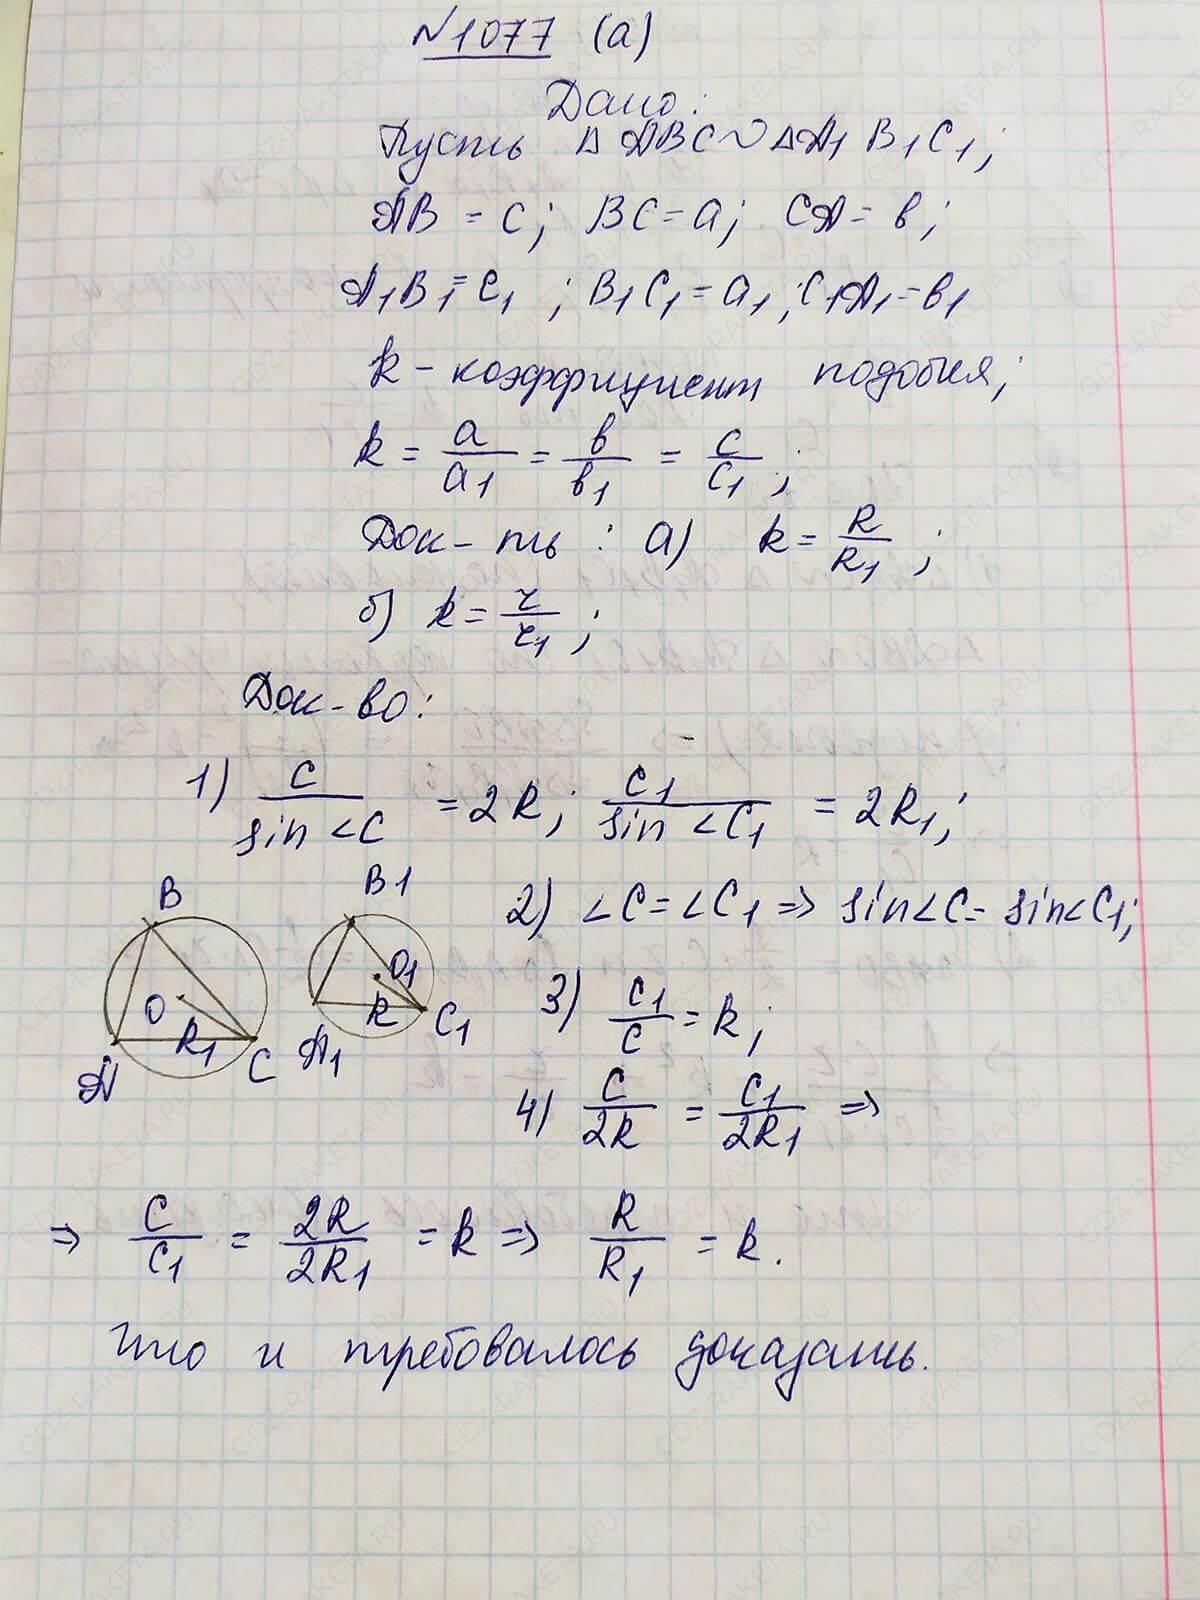 №1077 (а)
Дано:
Пусть Δ ABC ∾ ΔA1 B1C1;
AB = c; BC = a; CA = b;
A1B1 = c1 ; B1C1 = a1 ; C1A1 = b1
k - коэффициент подобия;
k = a/a1 = b/b1 = c/c1 ;
Док-ть : а) k = R/R1 ;
б) k = r/r1 ;
Док-во:
1) c/sin ∠C = 2R; c1/sin ∠C1 = 2R1;
2) ∠C = ∠C1 ⇒ sin∠C = sin∠C1;
B
B1
O
R1
A
C
O1
R
A1
C1
3) c1/c = k;
4) c/2R = c1/2R1 ⇒
⇒ c/c1 = 2R/2R1 = k ⇒ R/R1 = k.
Что и требовалось доказать.
GDZ-RAKETA.RU